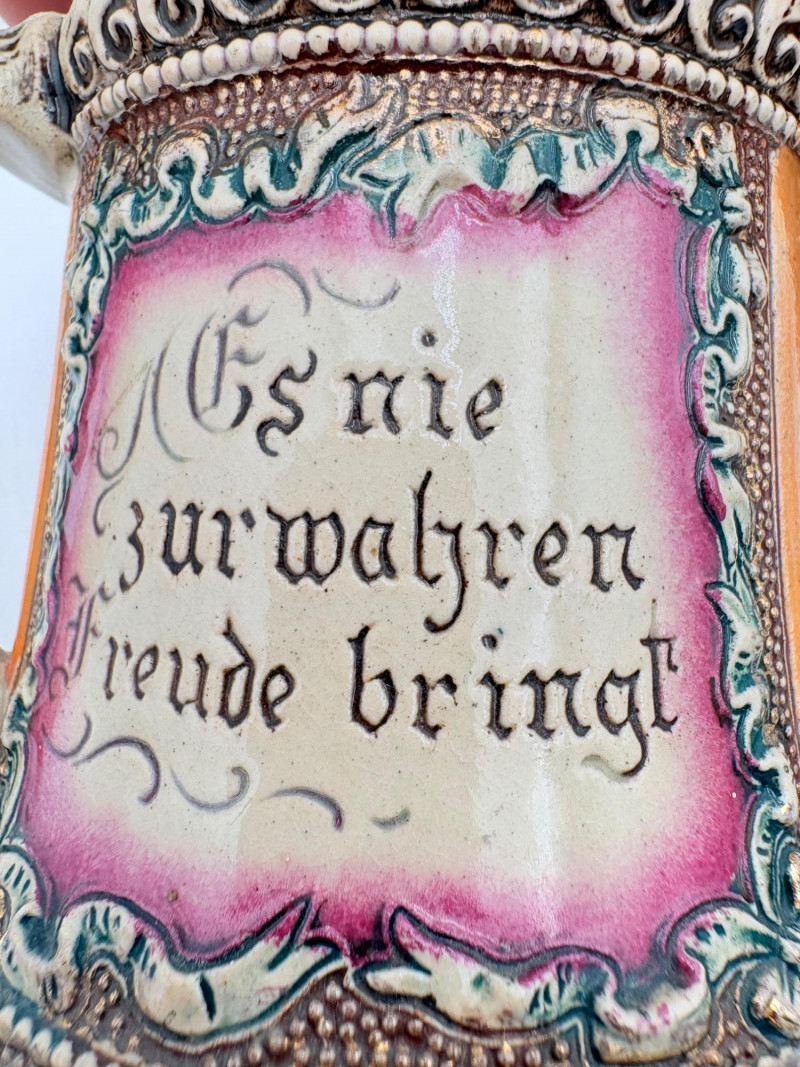 Es nie
zur wahren
Freude bringt